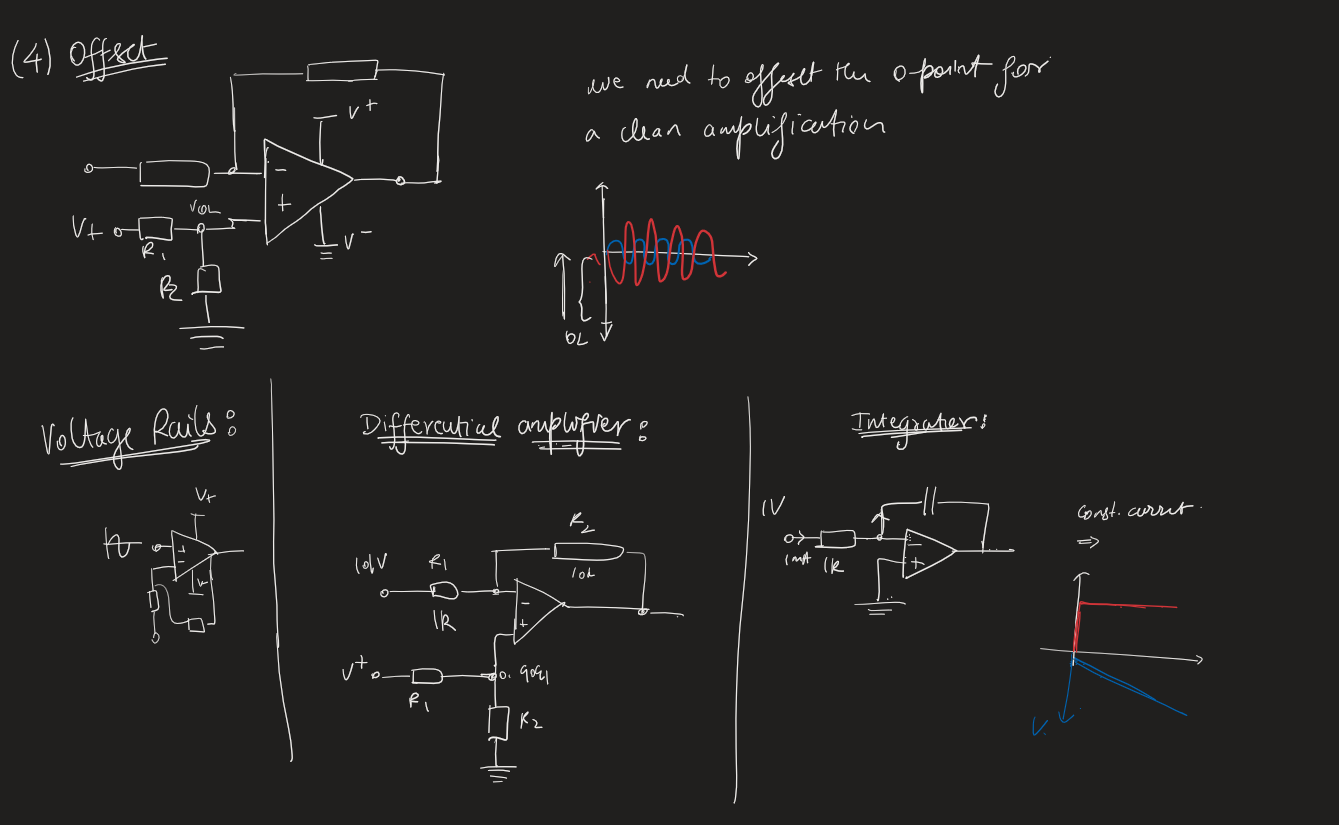 (4) Offset
we need to offset the 0-point for
a clean amplification
V+
-
+
V-
V+
R1
R2
OL
Voltage Rails:
V+
+
-
V-
Differential amplifier:
R2
R1
10k
1K
-
+
V+
0.9091
R1
R2
Integrater:
1V
1mA 1K
-
+
Const. current.
⇒
V.